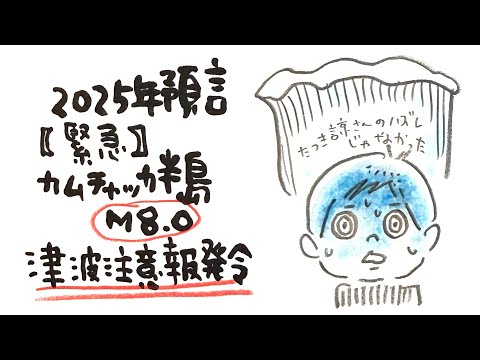 2025年預言
〖緊急〗
カムチャッカ半島
M8.0
津波注意報発令
たつき諒さんのハズレ
じゃなかった